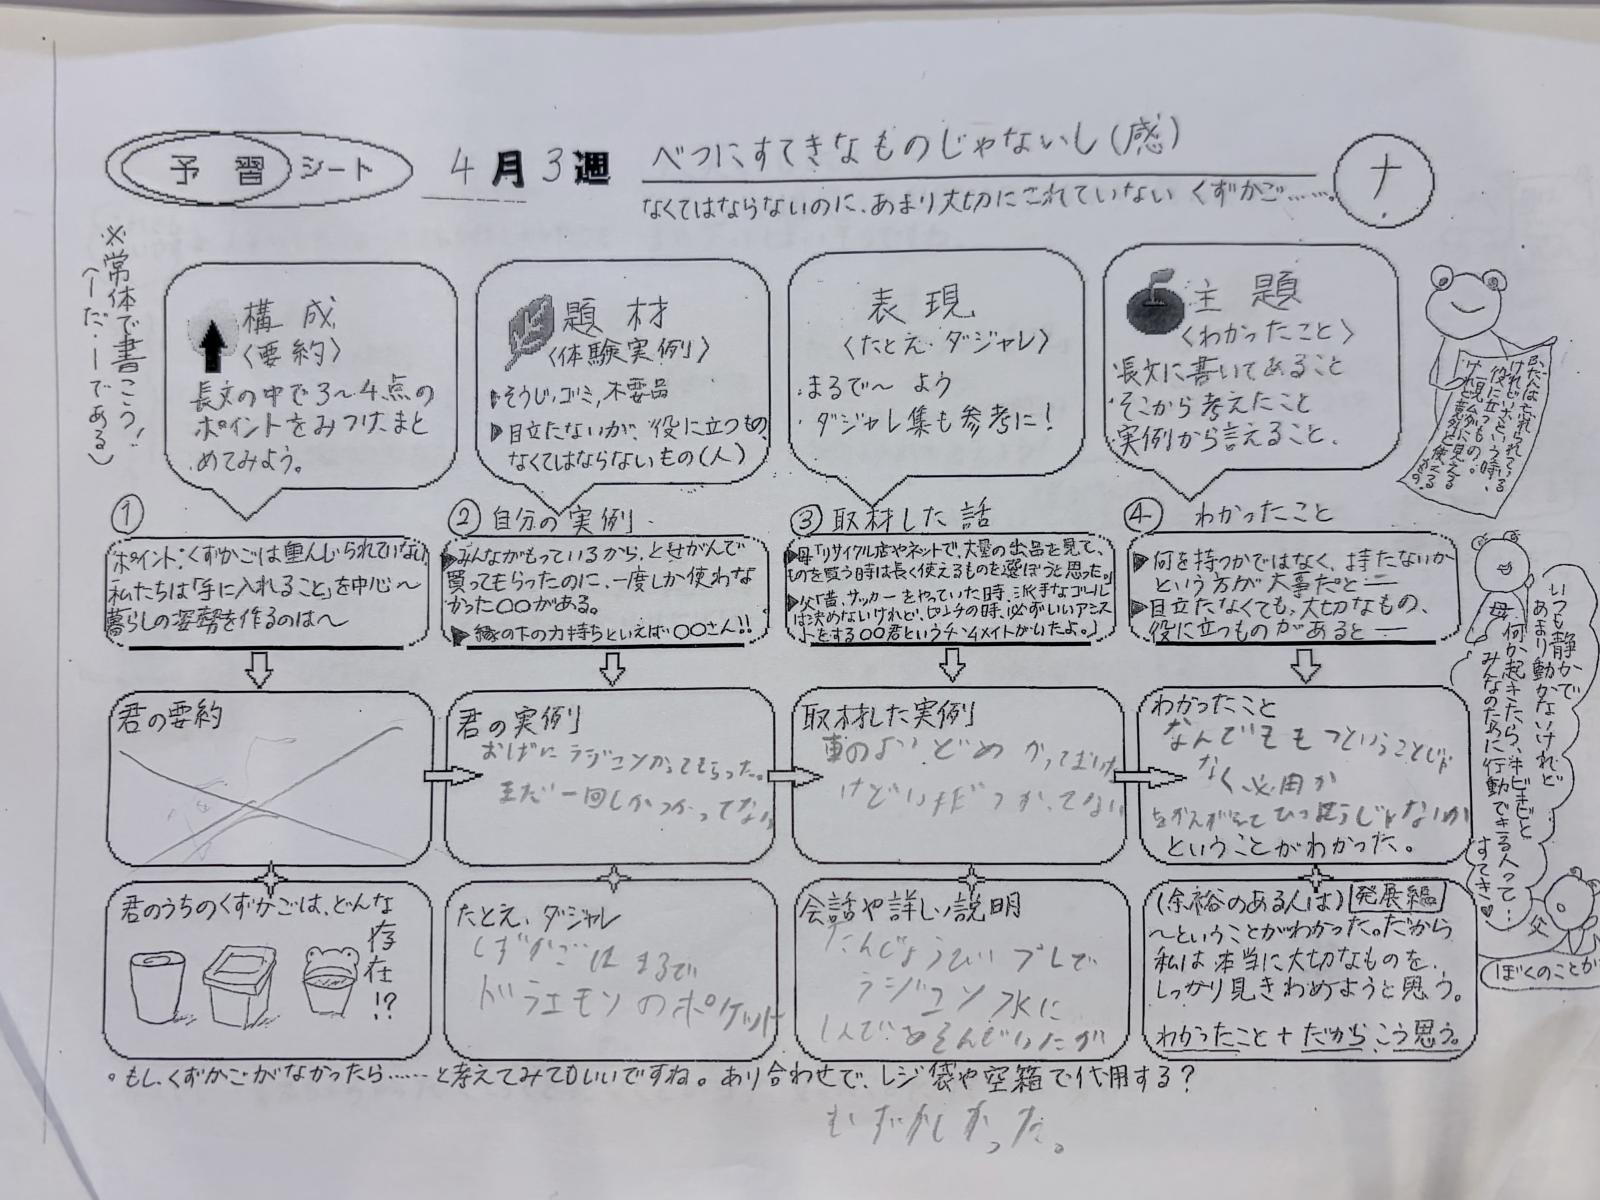 予習シート 4月3週 べつにすてきなものじゃないし(感)
なくてはならないのに、あまり大切にされていない くずかご……。
ナ
※常体で書こう!
(〜だ・〜である)
構成
〈要約〉
長文の中で3〜4点の
ポイントをみつけ、まと
めてみよう。
題材
〈体験実例〉
▶そうじ、ゴミ、不要品
▶目立たないが、役に立つもの、
なくてはならないもの(人)
表現
〈たとえ・ダジャレ〉
・まるで〜よう
・ダジャレ集も参考に!
主題
〈わかったこと〉
・長文に書いてあること
・そこから考えたこと
・実例から言えること、
ふだんは忘れられている
けれど、いざという時、
役に立つもの。
一見ムダに見える
けれど意外と使える
もの。
①
ポイント:くずかごは重んじられていない
私たちは「手に入れること」を中心〜
暮らしの姿勢を作るのは〜
② 自分の実例
▶みんながもっているから、とせがんで
買ってもらったのに、一度しか使わな
かった〇〇がある。
▶縁の下の力持ちといえば〇〇さん!!
③ 取材した話
▶母「リサイクル店やネットで、大量の出品を見て、
ものを買う時は長く使えるものを選ぼうと思った。」
▶父「昔、サッカーをやっていた時、派手なゴール
は決めないけれど、ピンチの時、必ずいいアシス
トをする〇〇君というチームメイトがいたよ。」
④ わかったこと
▶何を持つかではなく、持たないか
という方が大事だと―
▶目立たなくても、大切なもの、
役に立つものがあると―
母
いつも静かで
あまり動かないけれど
何か起きたら、キビキビと
みんなのために行動できる人って…
すてき♥
父
ぼくのことか
君の要約
君の実例
おばに ラジコンかってもらった。
まだ一回しかつかってない
取材した実例
車のよいどめ かって
けどいまだつかってない
わかったこと
なんでももつということじゃ
なく必用か
ということがわかった。
君のうちのくずかごは、どんな
存在!?
たとえ、ダジャレ
くずかごは まるで
ドラエモンのポケット
会話や詳しい説明
たんじょうびプレで
ラジコン 水に
(余裕のある人は) 発展編
〜ということがわかった。だから
私は本当に大切なものを、
しっかり見きわめようと思う。
わかったこと+だから、こう思う。
。もし、くずかごがなかったら……と考えてみてもいいですね。あり合わせで、レジ袋や空箱で代用する?
むずかしかった。